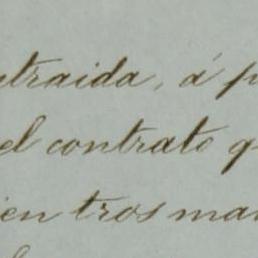 ntraida, á p
el contrato q
ien tros mar